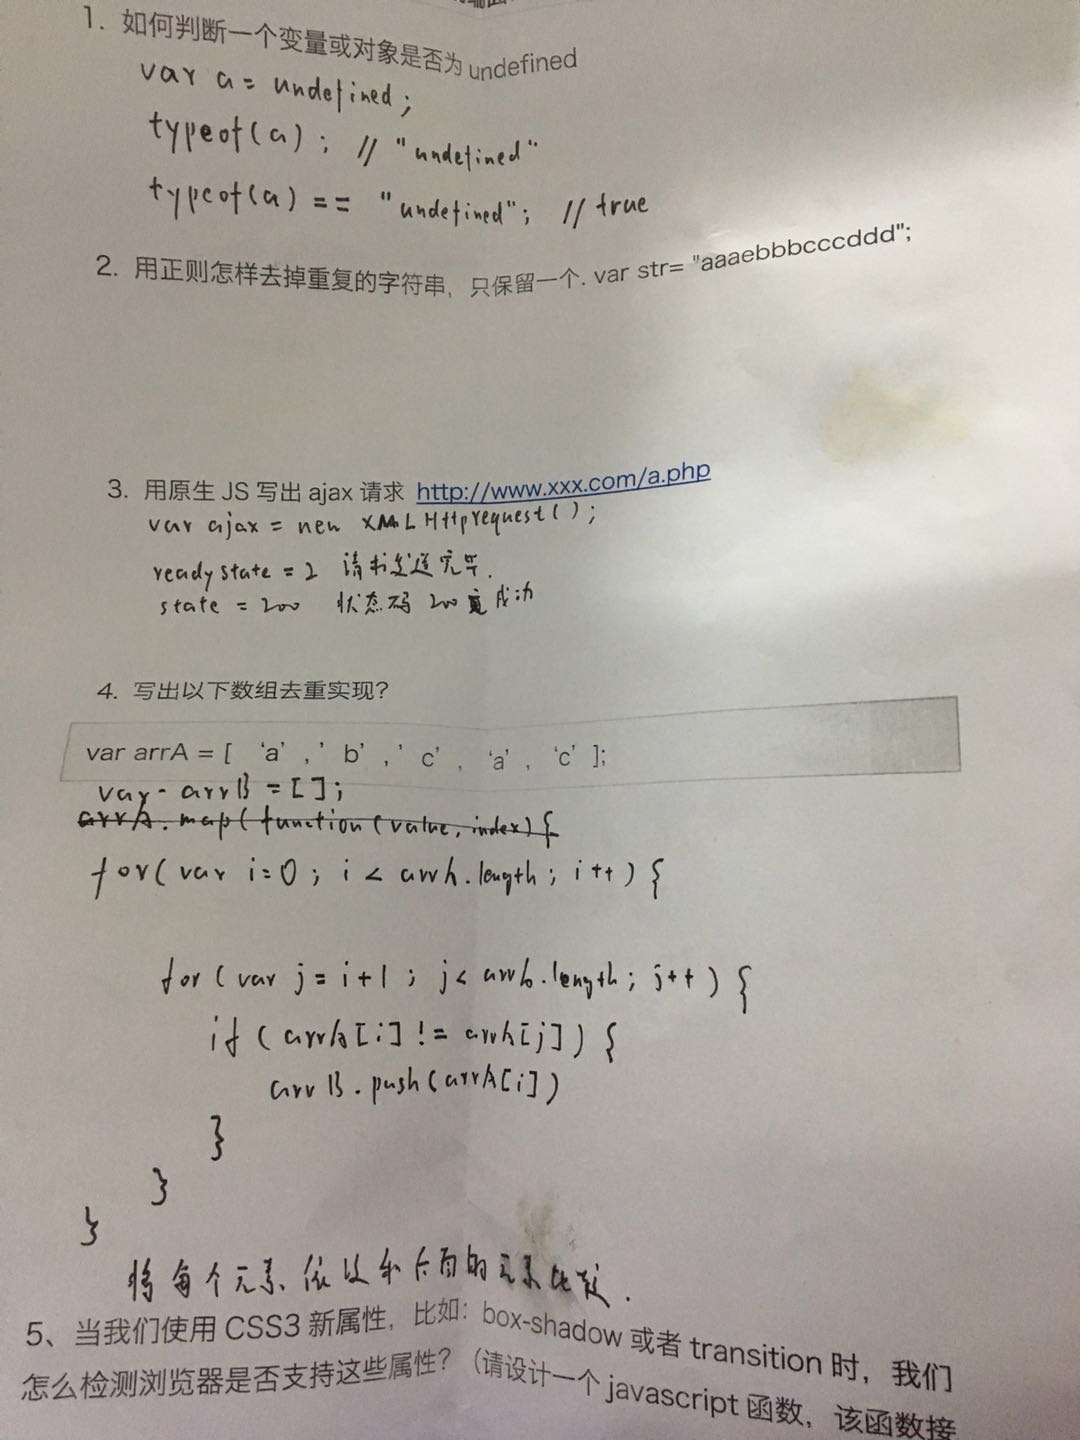 1. 如何判断一个变量或对象是否为 undefined
var a = undefined;
typeof(a); // "undefined"
typeof(a) == "undefined"; // true
2. 用正则怎样去掉重复的字符串，只保留一个. var str= "aaaebbbcccddd";
3. 用原生 JS 写出 ajax 请求 http://www.xxx.com/a.php
var ajax = new XMLHttprequest();
readystate = 2 请求发送完毕.
state = 200 状态码 200 成功
4. 写出以下数组去重实现?
var arrA = [ ‘a’ ,’ b’ ,’ c’ , ‘a’ , ‘c’ ];
var arrB = [];
arrA.map(function(value, index){
for(var i=0; i < arrA.length; i++){
for(var j=i+1; j< arrb.length; j++){
if(arrA[i] != arrA[j]){
arrB.push(arrA[i])
}
}
}
将每个元素依次和后面的元素比较.
5、当我们使用 CSS3 新属性，比如：box-shadow 或者 transition 时，我们
怎么检测浏览器是否支持这些属性？（请设计一个 javascript 函数，该函数接